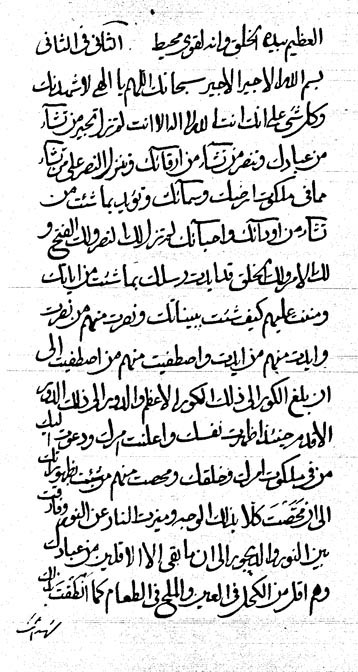 العظيم بيده الخلق وانه لقوى محيط الثانى فى الثانى
بسم الله الاجبر الاجبر سبحانك اللهم يا الهى لاشهدنك
وكل شئ على انك انت الله لا اله الا انت لم تزل تجير من تشاء
من عبادك وتنصر من تشاء من ارقائك وتنزل النصر على من تشاء
مما فى ملكوت ارضك وسمائك وتؤيد بما شئت من
تشاء من اودائك واحبائك لم تزل لك النصر ولك الفتح و
لك الامر ولك الخلق قد ايدت رسلك بما شئت من اياتك
ومننت عليهم كيف شئت ببيناتك ونصرت منهم من نصرت
وايدت منهم من ايدت واصطفيت منهم من اصطفيت الى
ان بلغ الكور الى ذلك الكور الاعظم والدور الى ذلك الدور
الاقدم حينئذ اظهرت نفسك واعلنت امرك ودعوت اليك
من فى ملكوت امرك وخلقك ومحصت منهم من شئت بظهور اياتك
الى ان محصت كلا بذلك الوجه وميزت النار عن النور وفرقت
بين النور والديجور الى ان ما بقى الا الاقلين من عبادك
وهم اقل من الكحل فى العين والملح فى الطعام كما انطقت بذلك